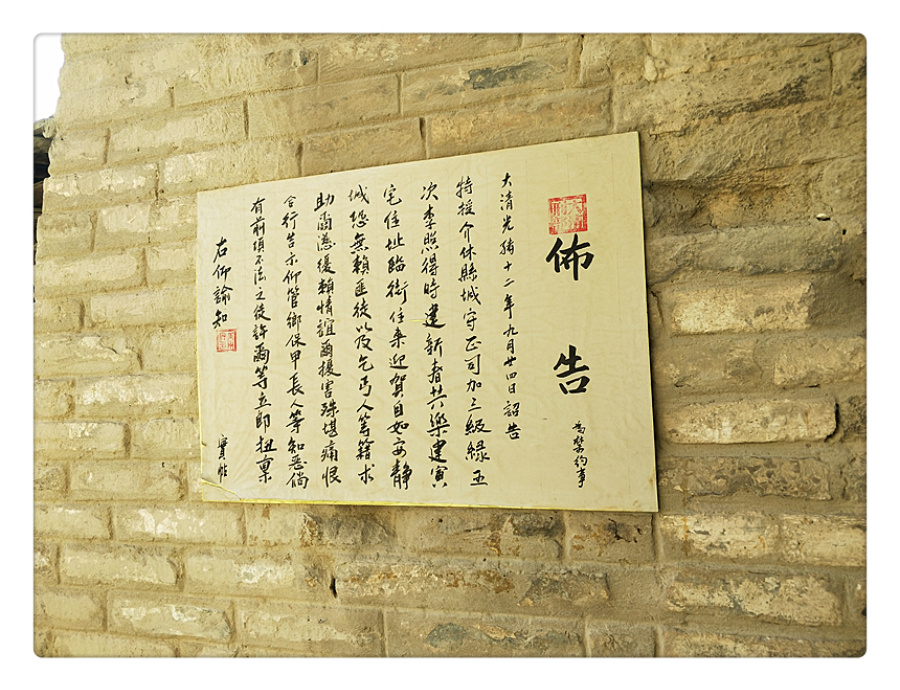 佈告
為禁約事
大清光緒十二年九月廿四日詔告
特授介休縣城守正司加三級綠五
次李照得時建新春共樂建寅
宅住址臨街住桑迎賀自如安靜
城恐無賴匪徒以及乞丐人等籍求
助爾憑優賴情誼爾擾害殊堪痛恨
合行告示仰管鄉保甲長人等知悉倘
有前項不法之徒許爾等立即扭稟
右仰諭知
實帖